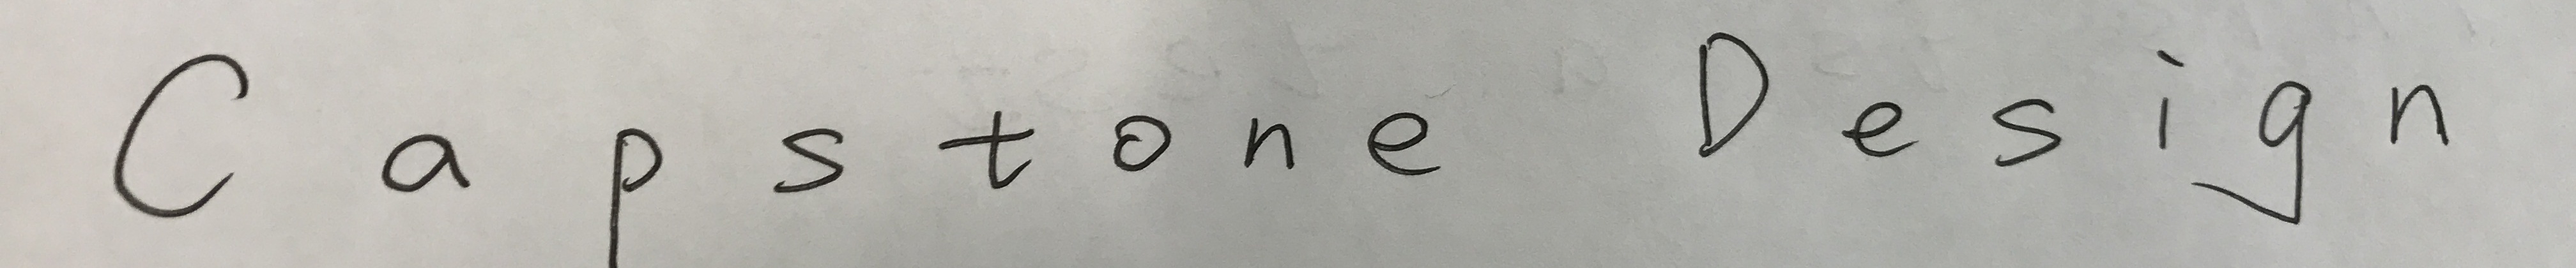 Capstone Design